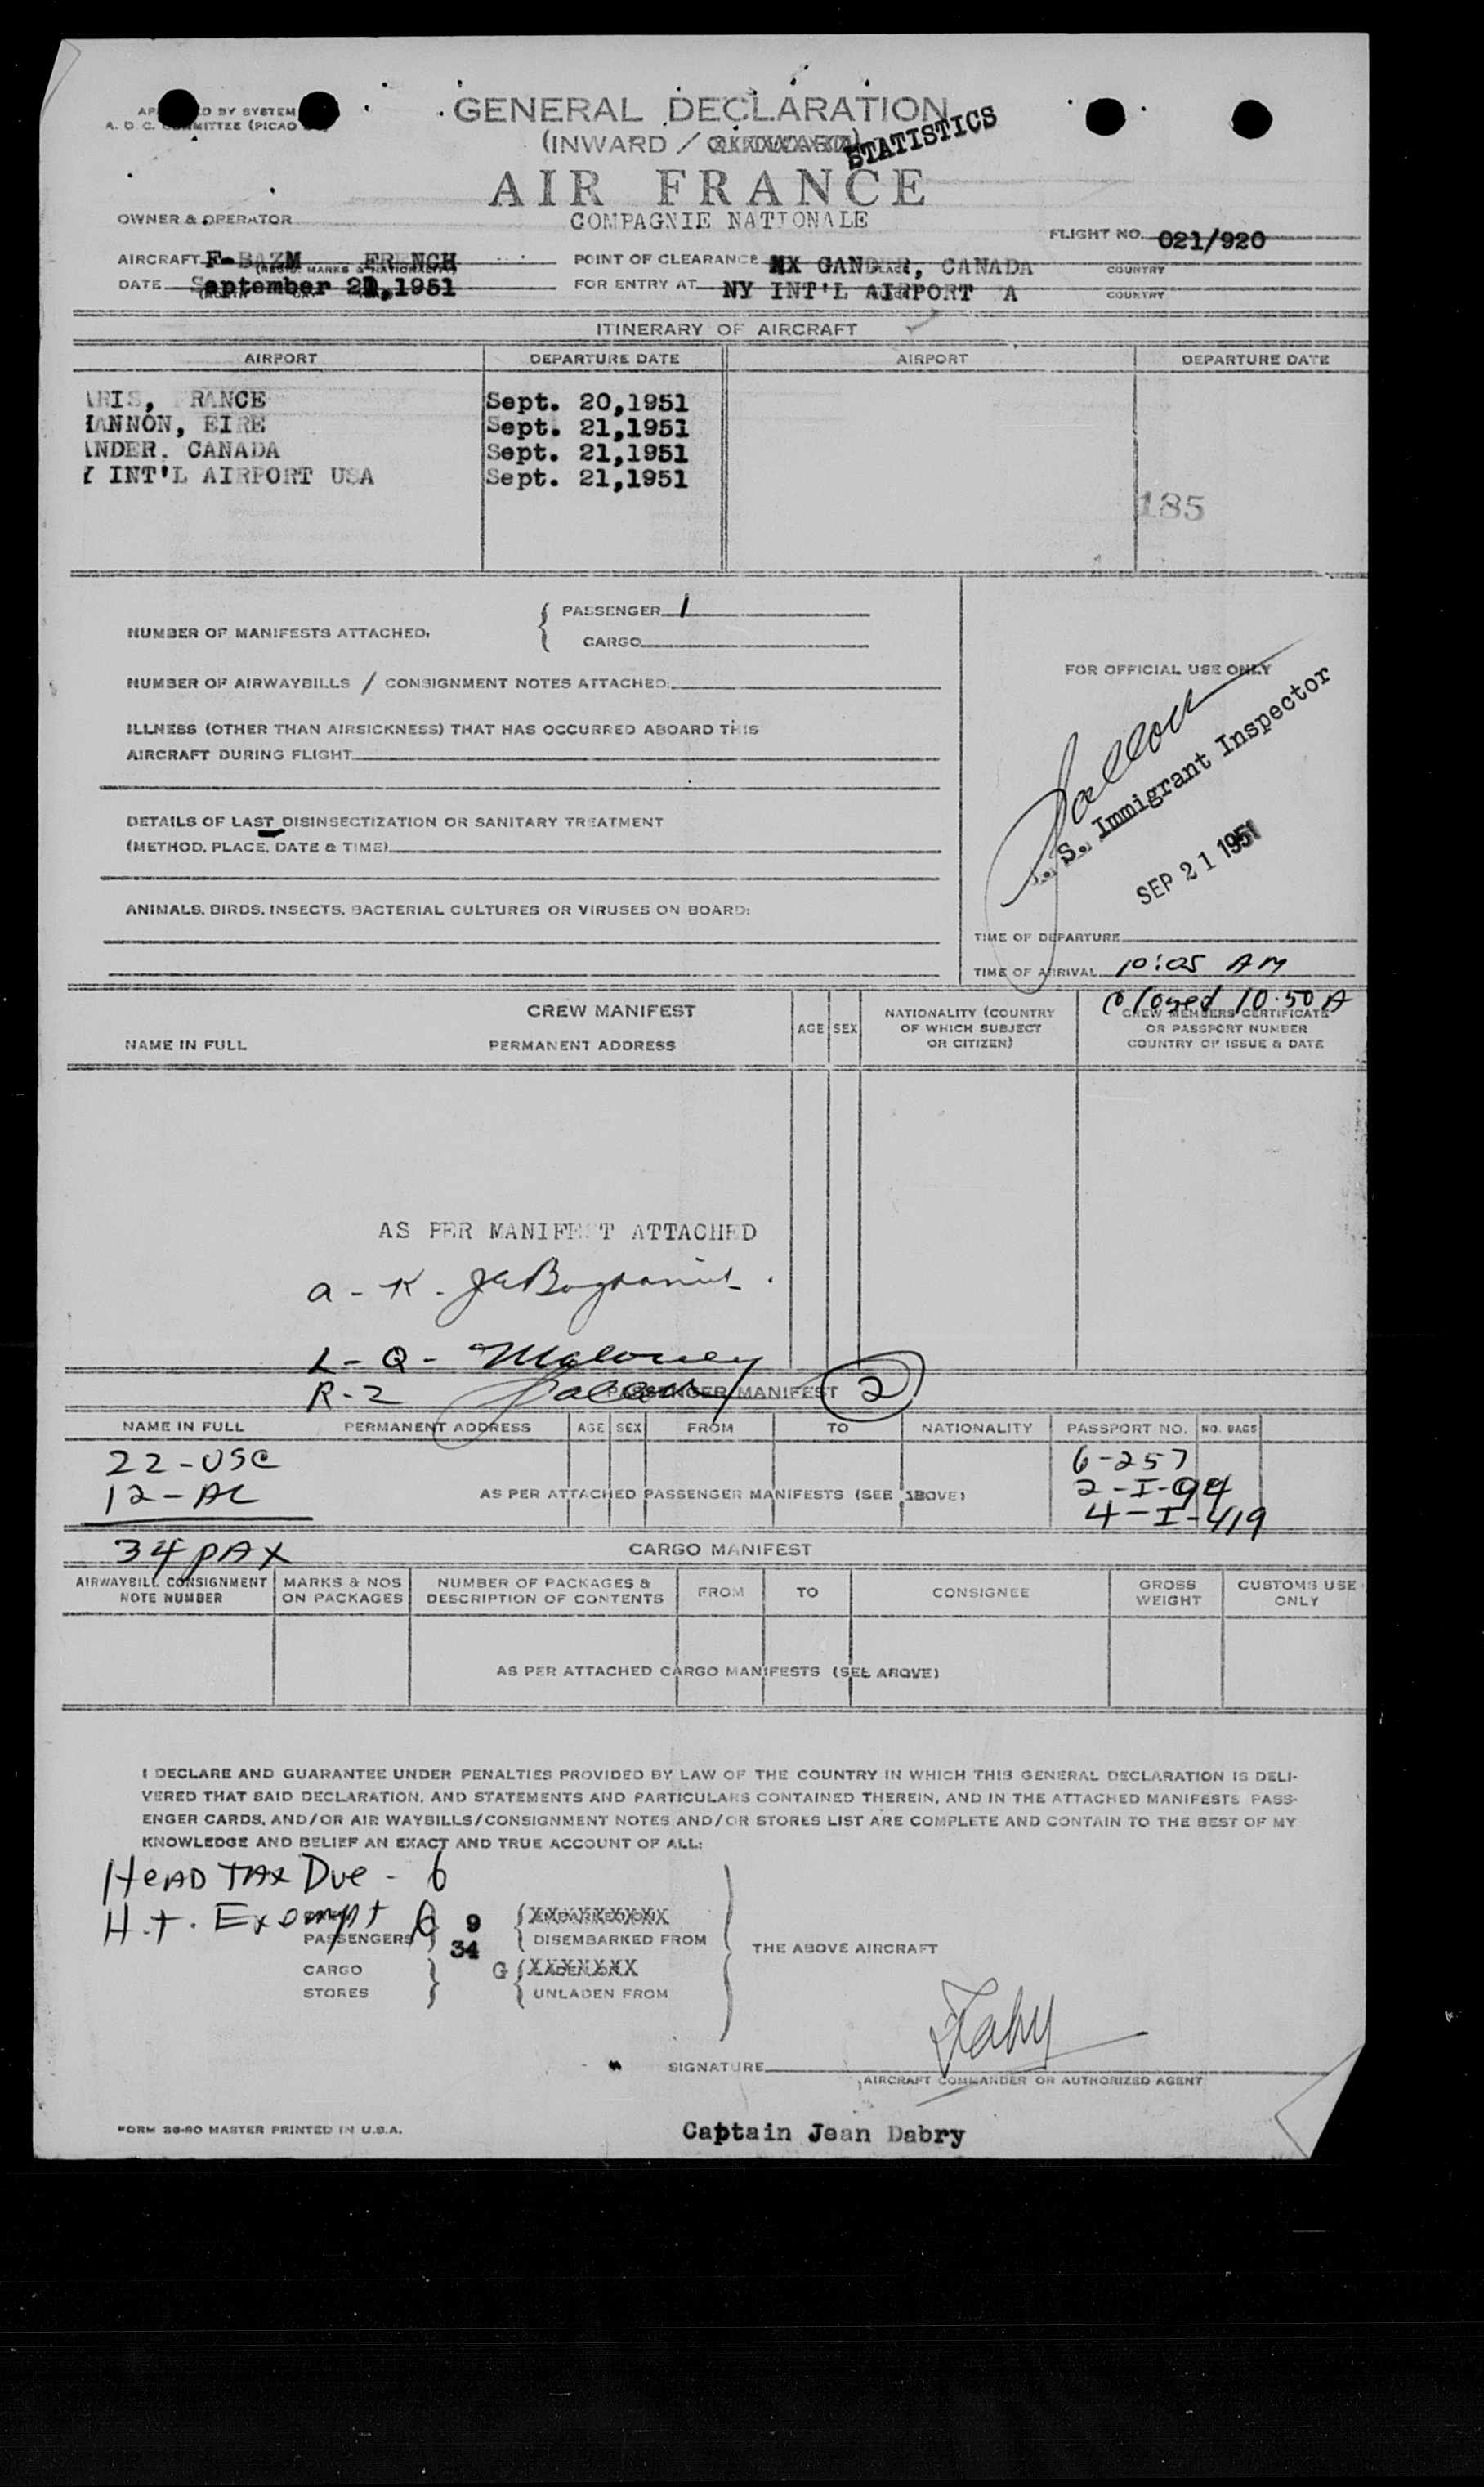 GENERAL DECLARATION
(INWARD /
STATISTICS
AIR FRANCE
COMPAGNIE NATIONALE
OWNER & OPERATOR
FLIGHT NO. 021/920
AIRCRAFT F-BAZM FRENCH
(REGIS. MARKS & NATIONALITY)
POINT OF CLEARANCE GANDER, CANADA
COUNTRY
DATE September 21,1951
FOR ENTRY AT NY INT'L AIRPORT A
COUNTRY
ITINERARY OF AIRCRAFT
AIRPORT DEPARTURE DATE AIRPORT DEPARTURE DATE
ARIS, RANCE Sept. 20,1951
HANNON, EIRE Sept. 21,1951
ANDER, CANADA Sept. 21,1951
Y INT'L AIRPORT USA Sept. 21,1951
185
NUMBER OF MANIFESTS ATTACHED:
PASSENGER 1
CARGO
NUMBER OF AIRWAYBILLS / CONSIGNMENT NOTES ATTACHED:
ILLNESS (OTHER THAN AIRSICKNESS) THAT HAS OCCURRED ABOARD THIS
AIRCRAFT DURING FLIGHT
DETAILS OF LAST DISINSECTIZATION OR SANITARY TREATMENT
(METHOD, PLACE, DATE & TIME)
ANIMALS, BIRDS, INSECTS, BACTERIAL CULTURES OR VIRUSES ON BOARD:
FOR OFFICIAL USE ONLY
S. Immigrant Inspector
SEP 21 1951
TIME OF DEPARTURE
TIME OF ARRIVAL 10:05 AM
Closed 10:50 A
CREW MANIFEST
NAME IN FULL PERMANENT ADDRESS
AGE SEX
NATIONALITY (COUNTRY
OF WHICH SUBJECT
OR CITIZEN)
CREW MEMBERS CERTIFICATE
OR PASSPORT NUMBER
COUNTRY OF ISSUE & DATE
AS PER MANIFEST ATTACHED
a - K -
L - Q - Maloney
R - 2
PASSENGER MANIFEST 2
NAME IN FULL PERMANENT ADDRESS AGE SEX FROM TO NATIONALITY PASSPORT NO. NO. BAGS
22 - USC
12 - AC
34 PAX
AS PER ATTACHED PASSENGER MANIFESTS (SEE ABOVE)
6-257
2-I-94
4-I-419
CARGO MANIFEST
AIRWAYBILL CONSIGNMENT
NOTE NUMBER
MARKS & NOS
ON PACKAGES
NUMBER OF PACKAGES &
DESCRIPTION OF CONTENTS
FROM
TO
CONSIGNEE
GROSS
WEIGHT
CUSTOMS USE
ONLY
AS PER ATTACHED CARGO MANIFESTS (SEE ABOVE)
I DECLARE AND GUARANTEE UNDER PENALTIES PROVIDED BY LAW OF THE COUNTRY IN WHICH THIS GENERAL DECLARATION IS DELI-
VERED THAT SAID DECLARATION, AND STATEMENTS AND PARTICULARS CONTAINED THEREIN, AND IN THE ATTACHED MANIFESTS PASS-
ENGER CARDS, AND/OR AIR WAYBILLS/CONSIGNMENT NOTES AND/OR STORES LIST ARE COMPLETE AND CONTAIN TO THE BEST OF MY
KNOWLEDGE AND BELIEF AN EXACT AND TRUE ACCOUNT OF ALL:
HEAD TAX Due - 6
H.T. Exempt 6
PASSENGERS
9
34
DISEMBARKED FROM
CARGO
STORES
G
UNLADEN FROM
THE ABOVE AIRCRAFT
SIGNATURE
AIRCRAFT COMMANDER OR AUTHORIZED AGENT
FORM 38-90 MASTER PRINTED IN U.S.A.
Captain Jean Dabry